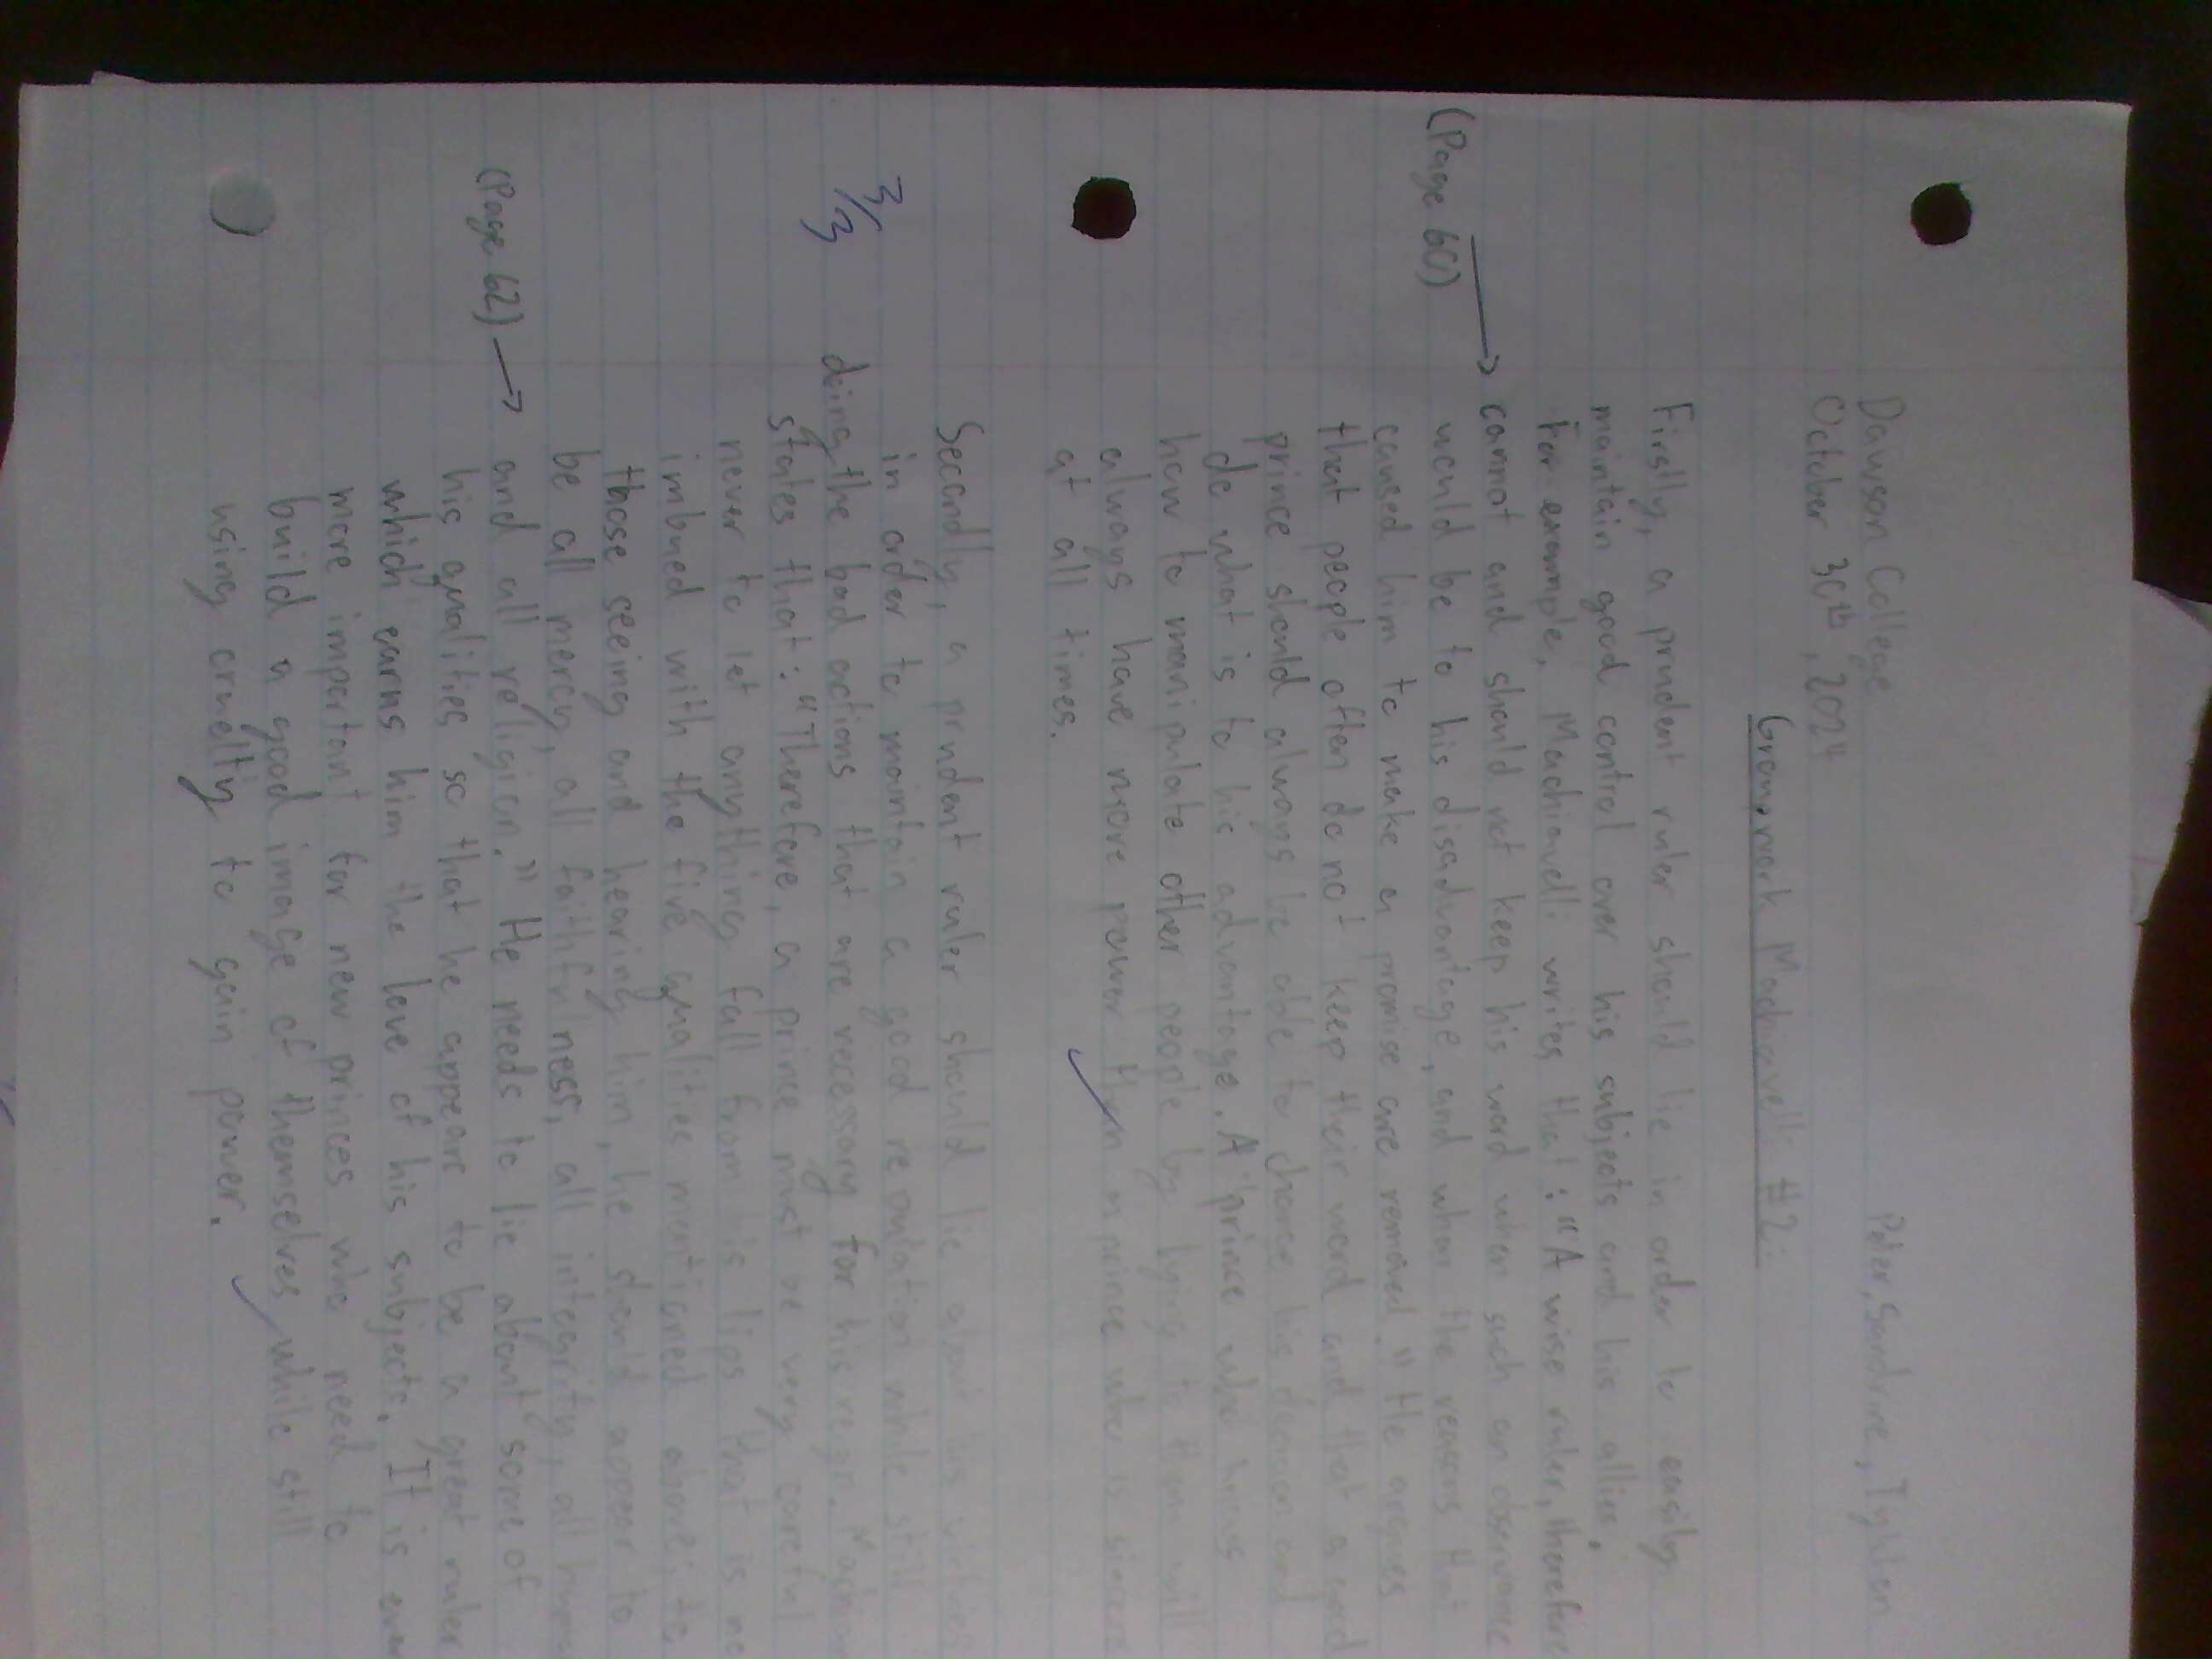 Dawson College
Peter, Sandrine, Tyhlen
October 30th, 2024
Groupwork Machiavelli #2:
Firstly, a prudent ruler should lie in order to easily
maintain good control over his subjects and his allies.
For example, Machiavelli writes that: "A wise ruler, therefore
(Page 60) → cannot and should not keep his word when such an observance
would be to his disadvantage, and when the reasons that
caused him to make a promise are removed." He argues
that people often do not keep their word and that a good
prince should always be able to change his decision and
do what is to his advantage. A prince who knows
how to manipulate other people by lying to them will
always have more power than a prince who is sincere
at all times.
Secondly, a prudent ruler should lie about his virtues
in order to maintain a good reputation while still
3/3 doing the bad actions that are necessary for his reign.
states that: "Therefore, a prince must be very careful
never to let anything fall from his lips that is no
imbued with the five qualities mentioned above; to
those seeing and hearing him, he should appear to
be all mercy, all faithfulness, all integrity, all
(Page 62) → and all religion." He needs to lie about some of
his qualities so that he appears to be a great ruler
which earns him the love of his subjects. It is even
more important for new princes who need to
build a good image of themselves while still
using cruelty to gain power.